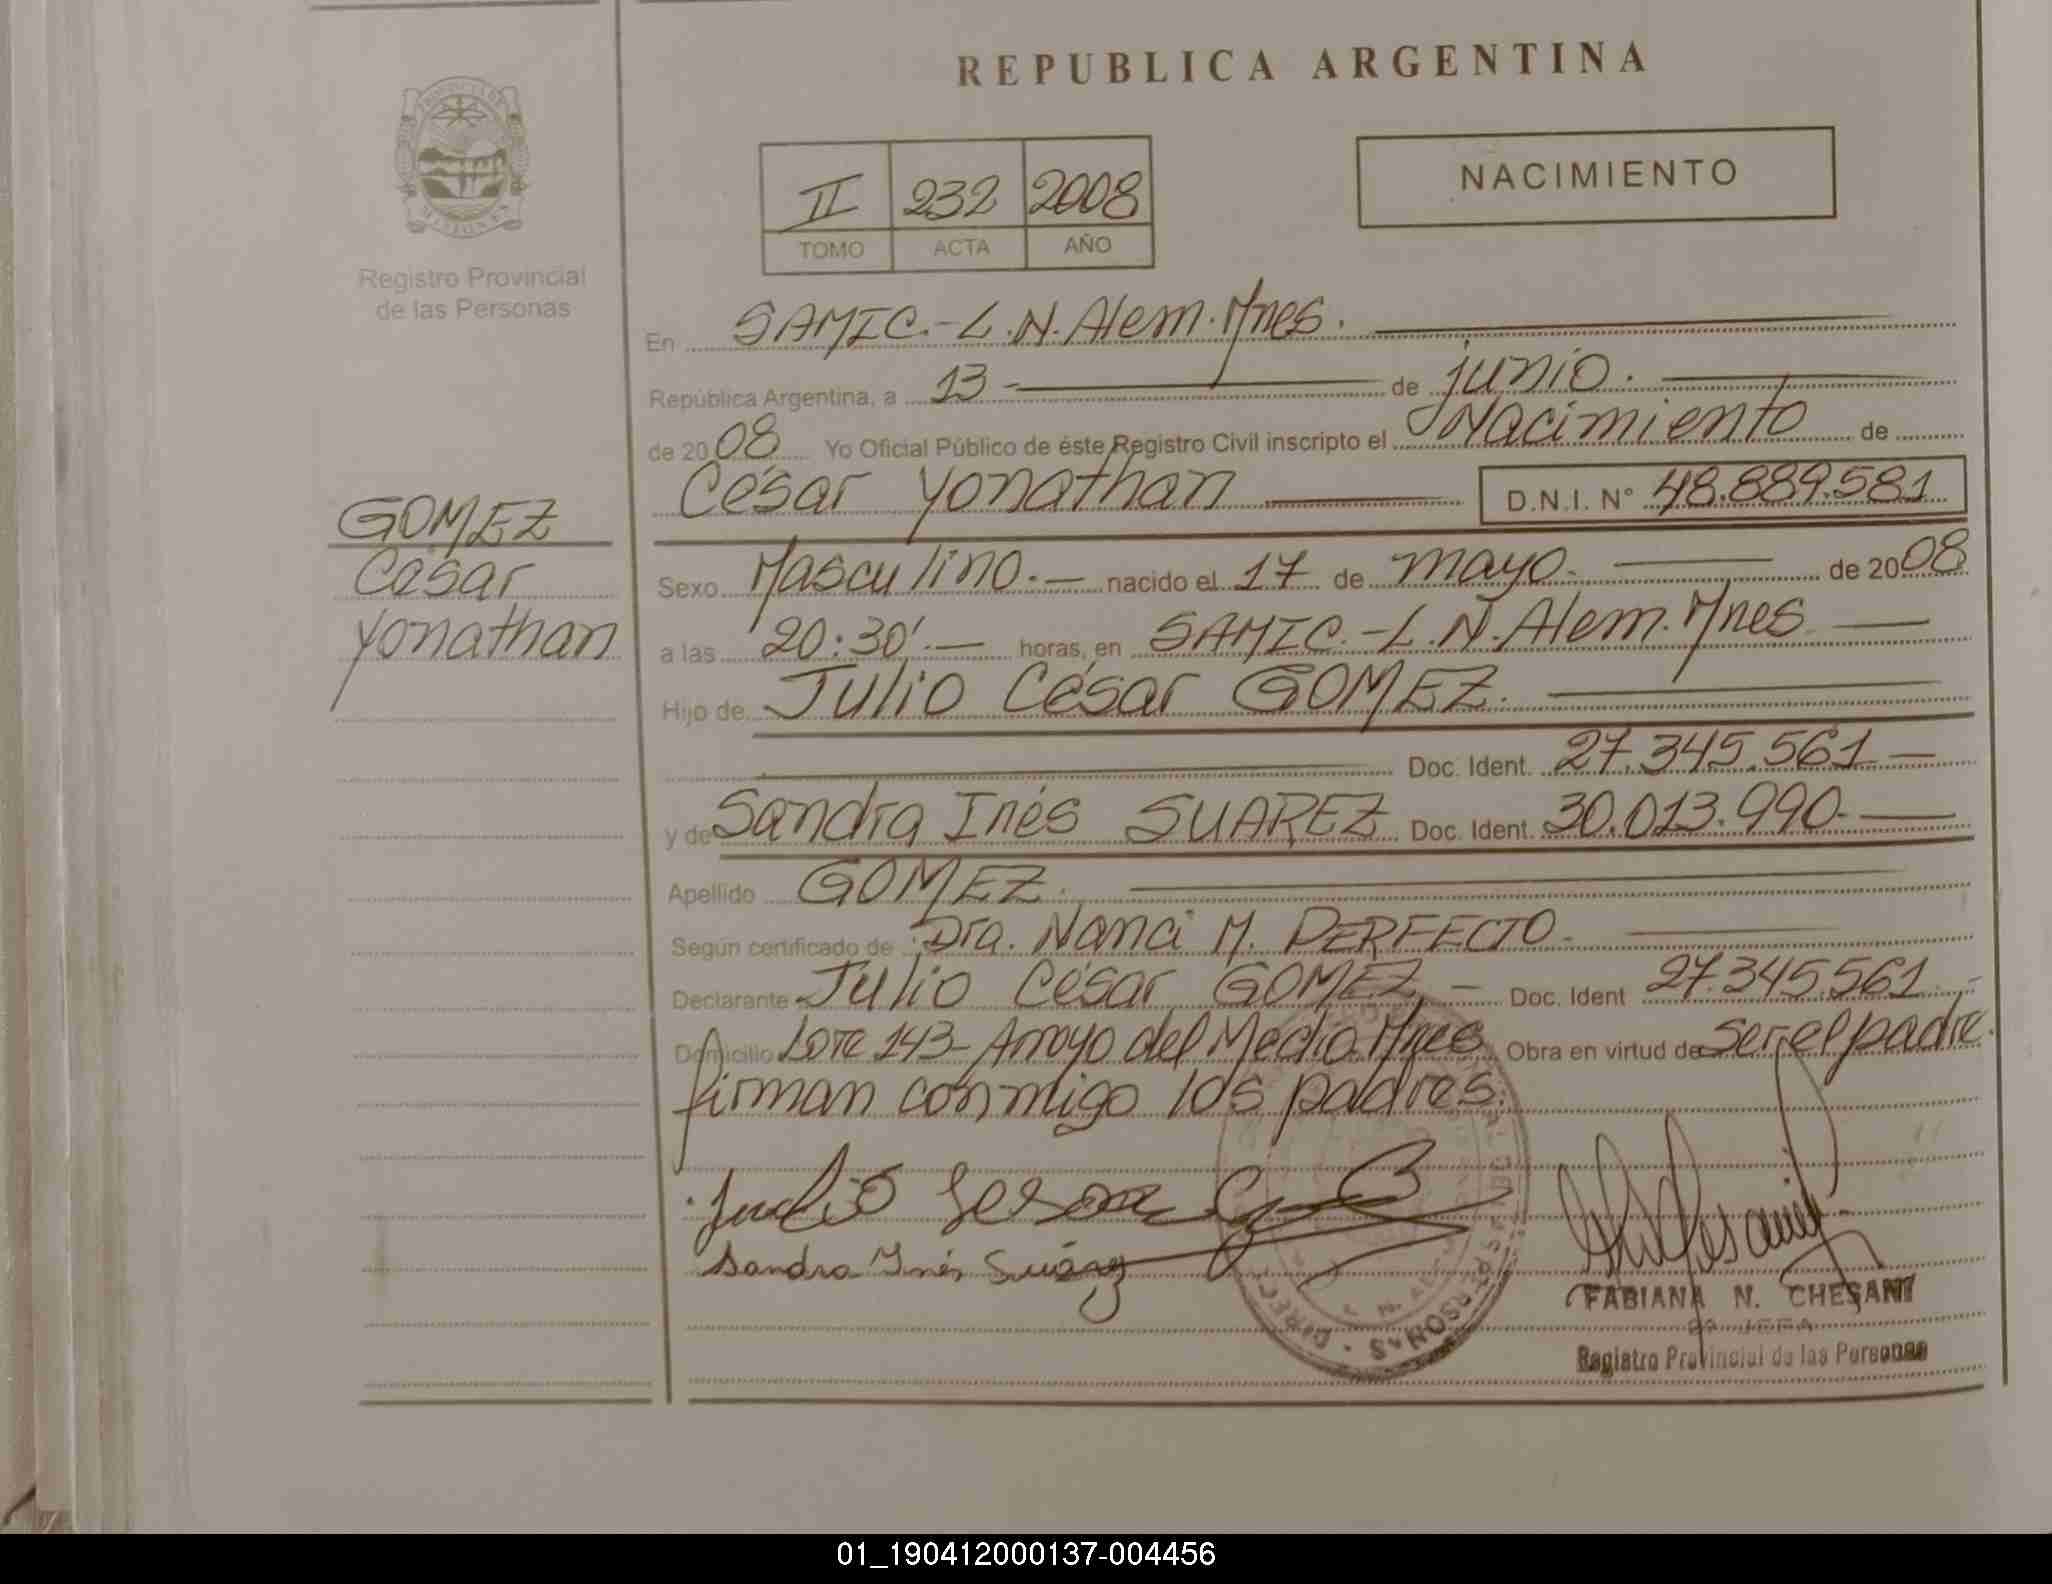 REPUBLICA ARGENTINA
NACIMIENTO
II 232 2008
TOMO ACTA AÑO
PROVINCIA DE
MISIONES
Registro Provincial
de las Personas
GOMEZ
César
Yonathan
En SAMIC.-L.N.Alem.Mnes.
República Argentina, a 13 - de junio.
de 2008 Yo Oficial Público de éste Registro Civil inscripto el Nacimiento de
César Yonathan D.N.I. N° 48.889.581
Sexo Masculino.- nacido el 17 de mayo. de 2008
a las 20:30'.- horas, en SAMIC.-L.N.Alem.Mnes
Hijo de Julio César GOMEZ.
Doc. Ident. 27.345.561-
y de Sandra Inés SUAREZ Doc. Ident. 30.013.990-
Apellido GOMEZ.
Según certificado de Dra. Nanci M. PERFECTO.
Declarante Julio César GOMEZ.- Doc. Ident 27.345.561.-
Domicilio Lote 143-Arroyo del Medio.Mnes Obra en virtud de ser el padre.
firman conmigo los padres.
Sandra Inés Suárez
FABIANA N. CHESANI
JEFA
Registro Provincial de las Personas
01_190412000137-004456